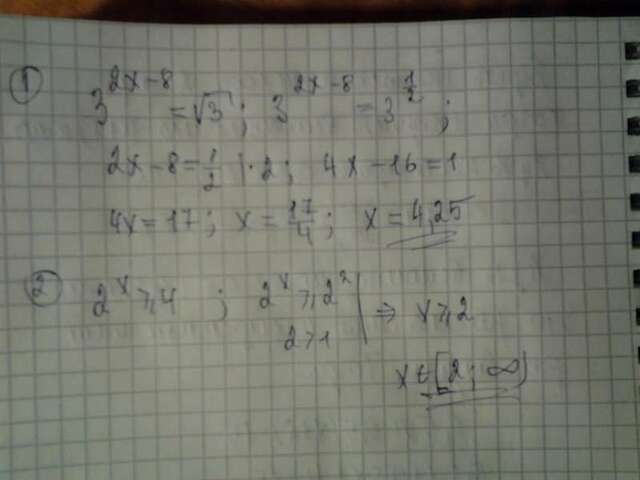 ① 3^{2x-8} = √3 ; 3^{2x-8} = 3^{1/2} ;
2x-8 = 1/2 | · 2 ; 4x - 16 = 1
4x = 17 ; x = 17/4 ; x = 4,25
② 2^x ⩾ 4 ; 2^x ⩾ 2^2 | ⇒ x ⩾ 2
2 > 1
x ∈ [2 ; ∞)